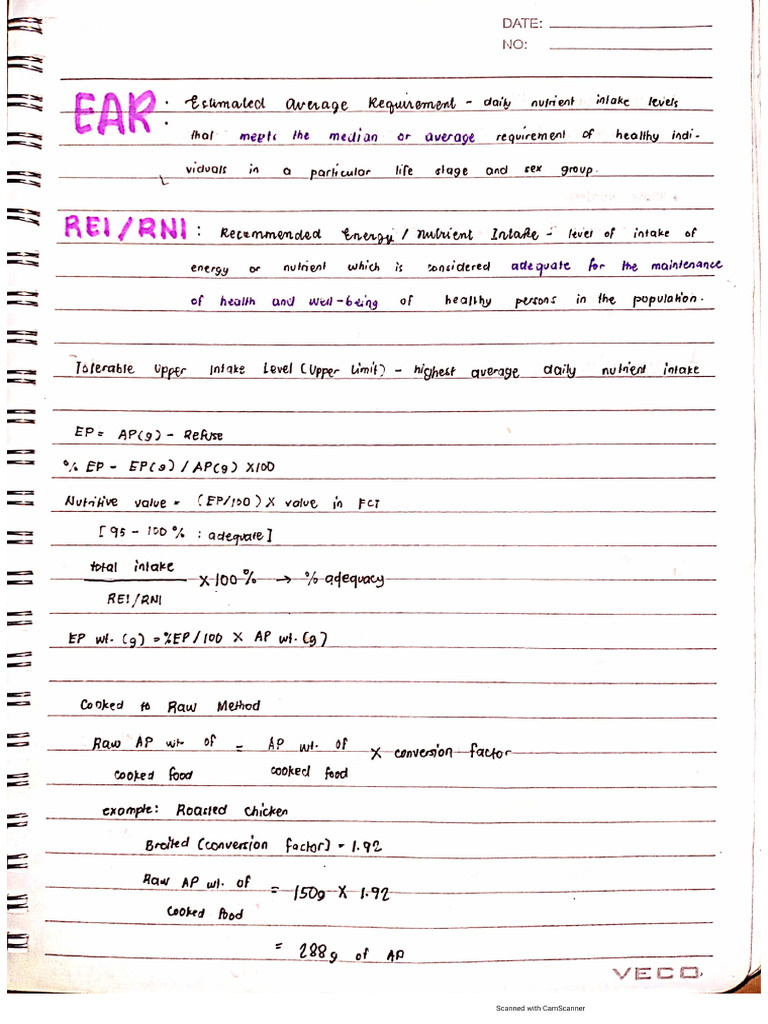 DATE:
NO:
EAR : Estimated Average Requirement - daily nutrient intake levels
that meets the median or average requirement of healthy indi-
viduals in a particular life stage and sex group.
REI/RNI : Recommended Energy / Nutrient Intake - level of intake of
energy or nutrient which is considered adequate for the maintenance
of health and well-being of healthy persons in the population.
Tolerable Upper Intake Level (Upper Limit) - highest average daily nutrient intake
EP = AP(g) - Refuse
% EP - EP(g) / AP(g) X100
Nutritive value = (EP/100) X value in FCT
[95 - 100 % : adequate]
total intake
X 100 % → % adequacy
REI/RNI
EP wt. (g) = %EP/100 X AP wt. (g)
Cooked to Raw Method
Raw AP wt. of = AP wt. of X conversion factor
cooked food cooked food
example: Roasted chicken
Broiled (conversion factor) - 1.92
Raw AP wt. of = 150g X 1.92
cooked food
= 288g of AP
VECO.
Scanned with CamScanner